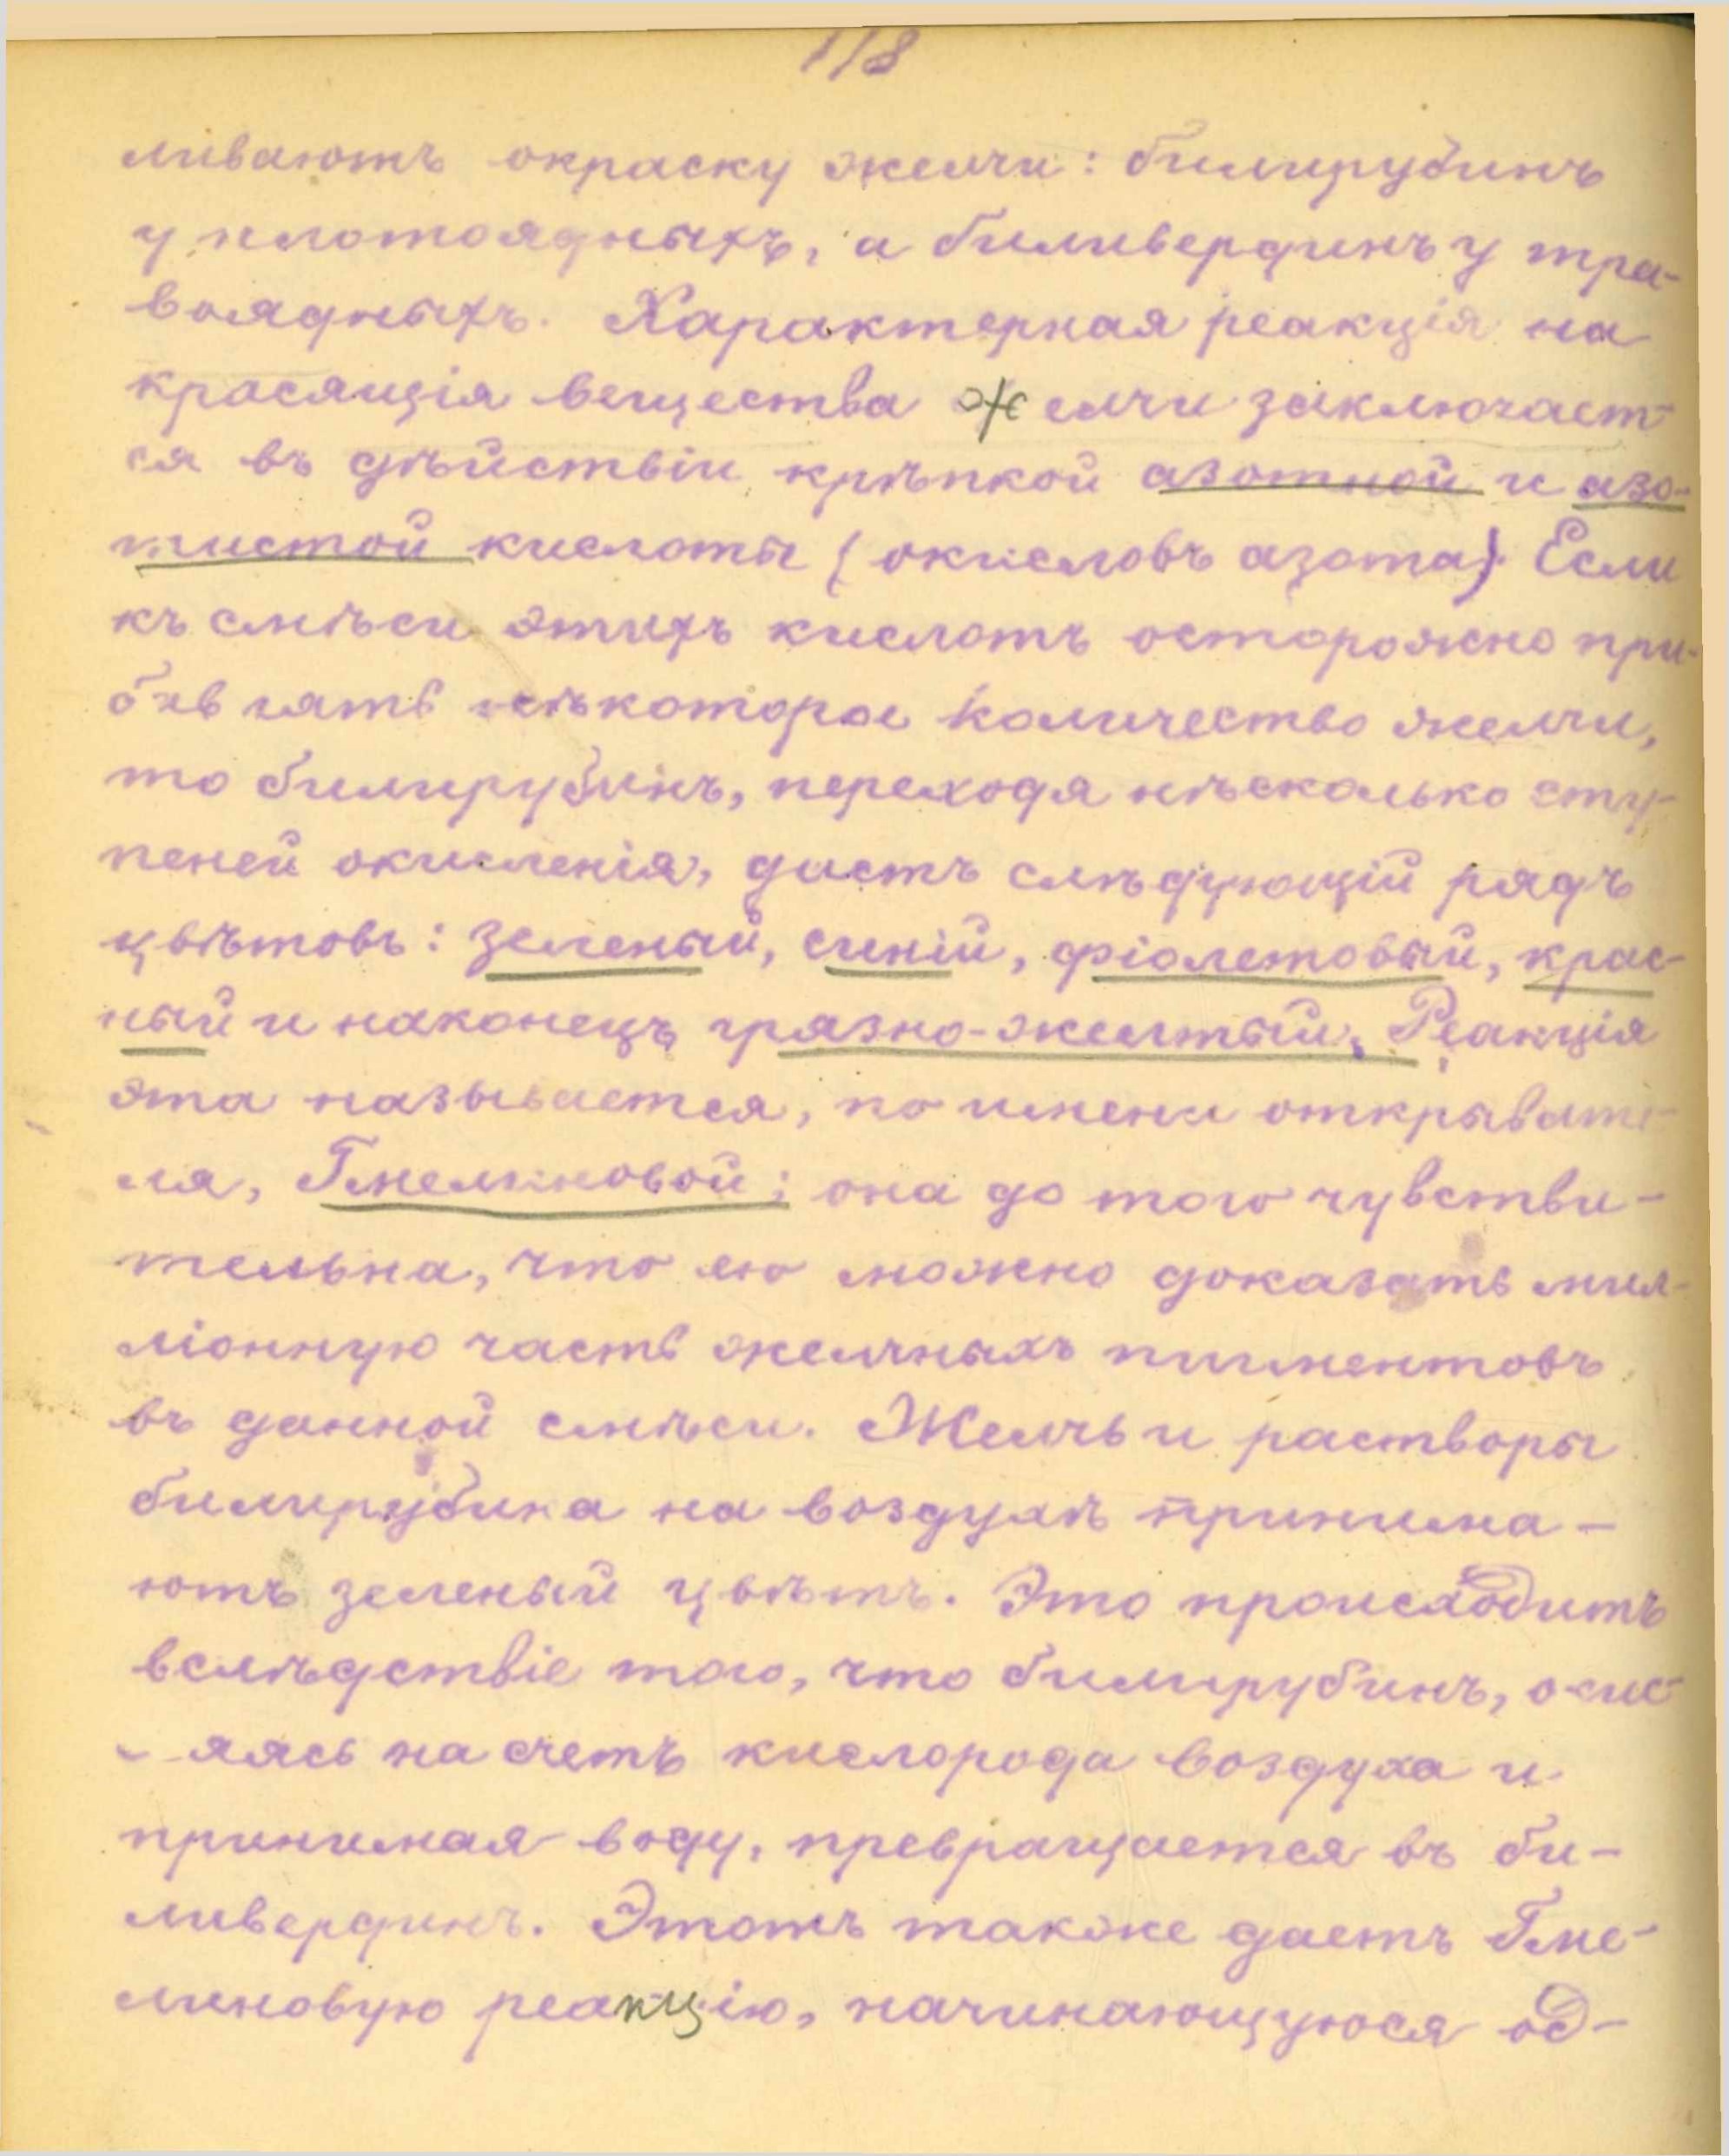 118
ливаютъ окраску желчи: билирубинъ
у плотоядныхъ, а биливердинъ у тра-
воядныхъ. Характерная реакція на
красящія вещества желчи заключает-
ся въ дѣйствіи крѣпкой азотной и азо-
тистой кислоты (окисловъ азота). Если
къ смѣси этихъ кислотъ осторожно при-
бавлять нѣкоторое количество желчи,
то билирубинъ, переходя нѣсколько сту-
пеней окисленія, дастъ слѣдующій рядъ
цвѣтовъ: зеленый, синій, фіолетовый, крас-
ный и наконецъ грязно-желтый. Реакція
эта называется, по имени открывате-
ля, Гмелиновой; она до того чувстви-
тельна, что ею можно доказать мил-
ліонную часть желчныхъ пигментовъ
въ данной смѣси. Желчь и растворы
билирубина на воздухѣ принима-
ютъ зеленый цвѣтъ. Это происходитъ
вслѣдствіе того, что билирубинъ, окис-
ляясь на счетъ кислорода воздуха и
принимая воду, превращается въ би-
ливердинъ. Этотъ также даетъ Гме-
линовую реакцію, начинающуюся од-